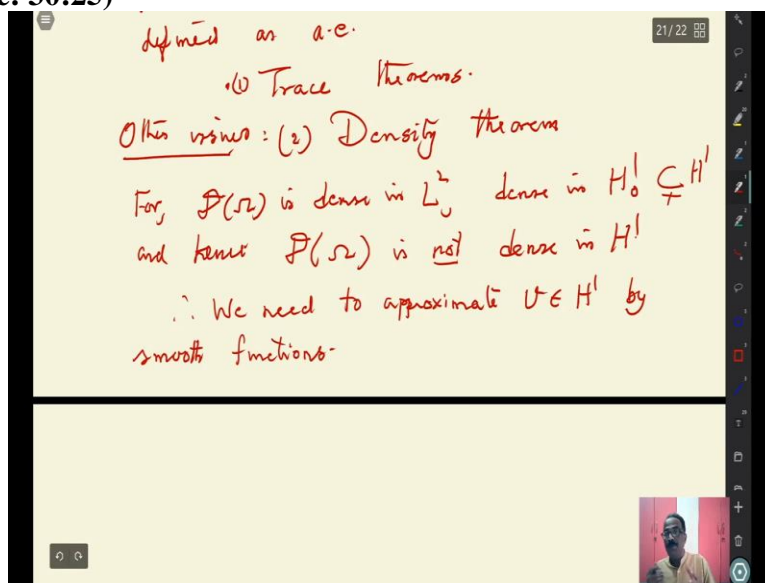 c. 30:25)
21/22
defined as a.e.
(1) Trace theorems.
Other issues: (2) Density theorem
For, 𝒟(Ω) is dense in L², dense in H¹₀ ⊊ H¹
and hence 𝒟(Ω) is not dense in H¹
∴ We need to approximate v ∈ H¹ by
smooth functions.